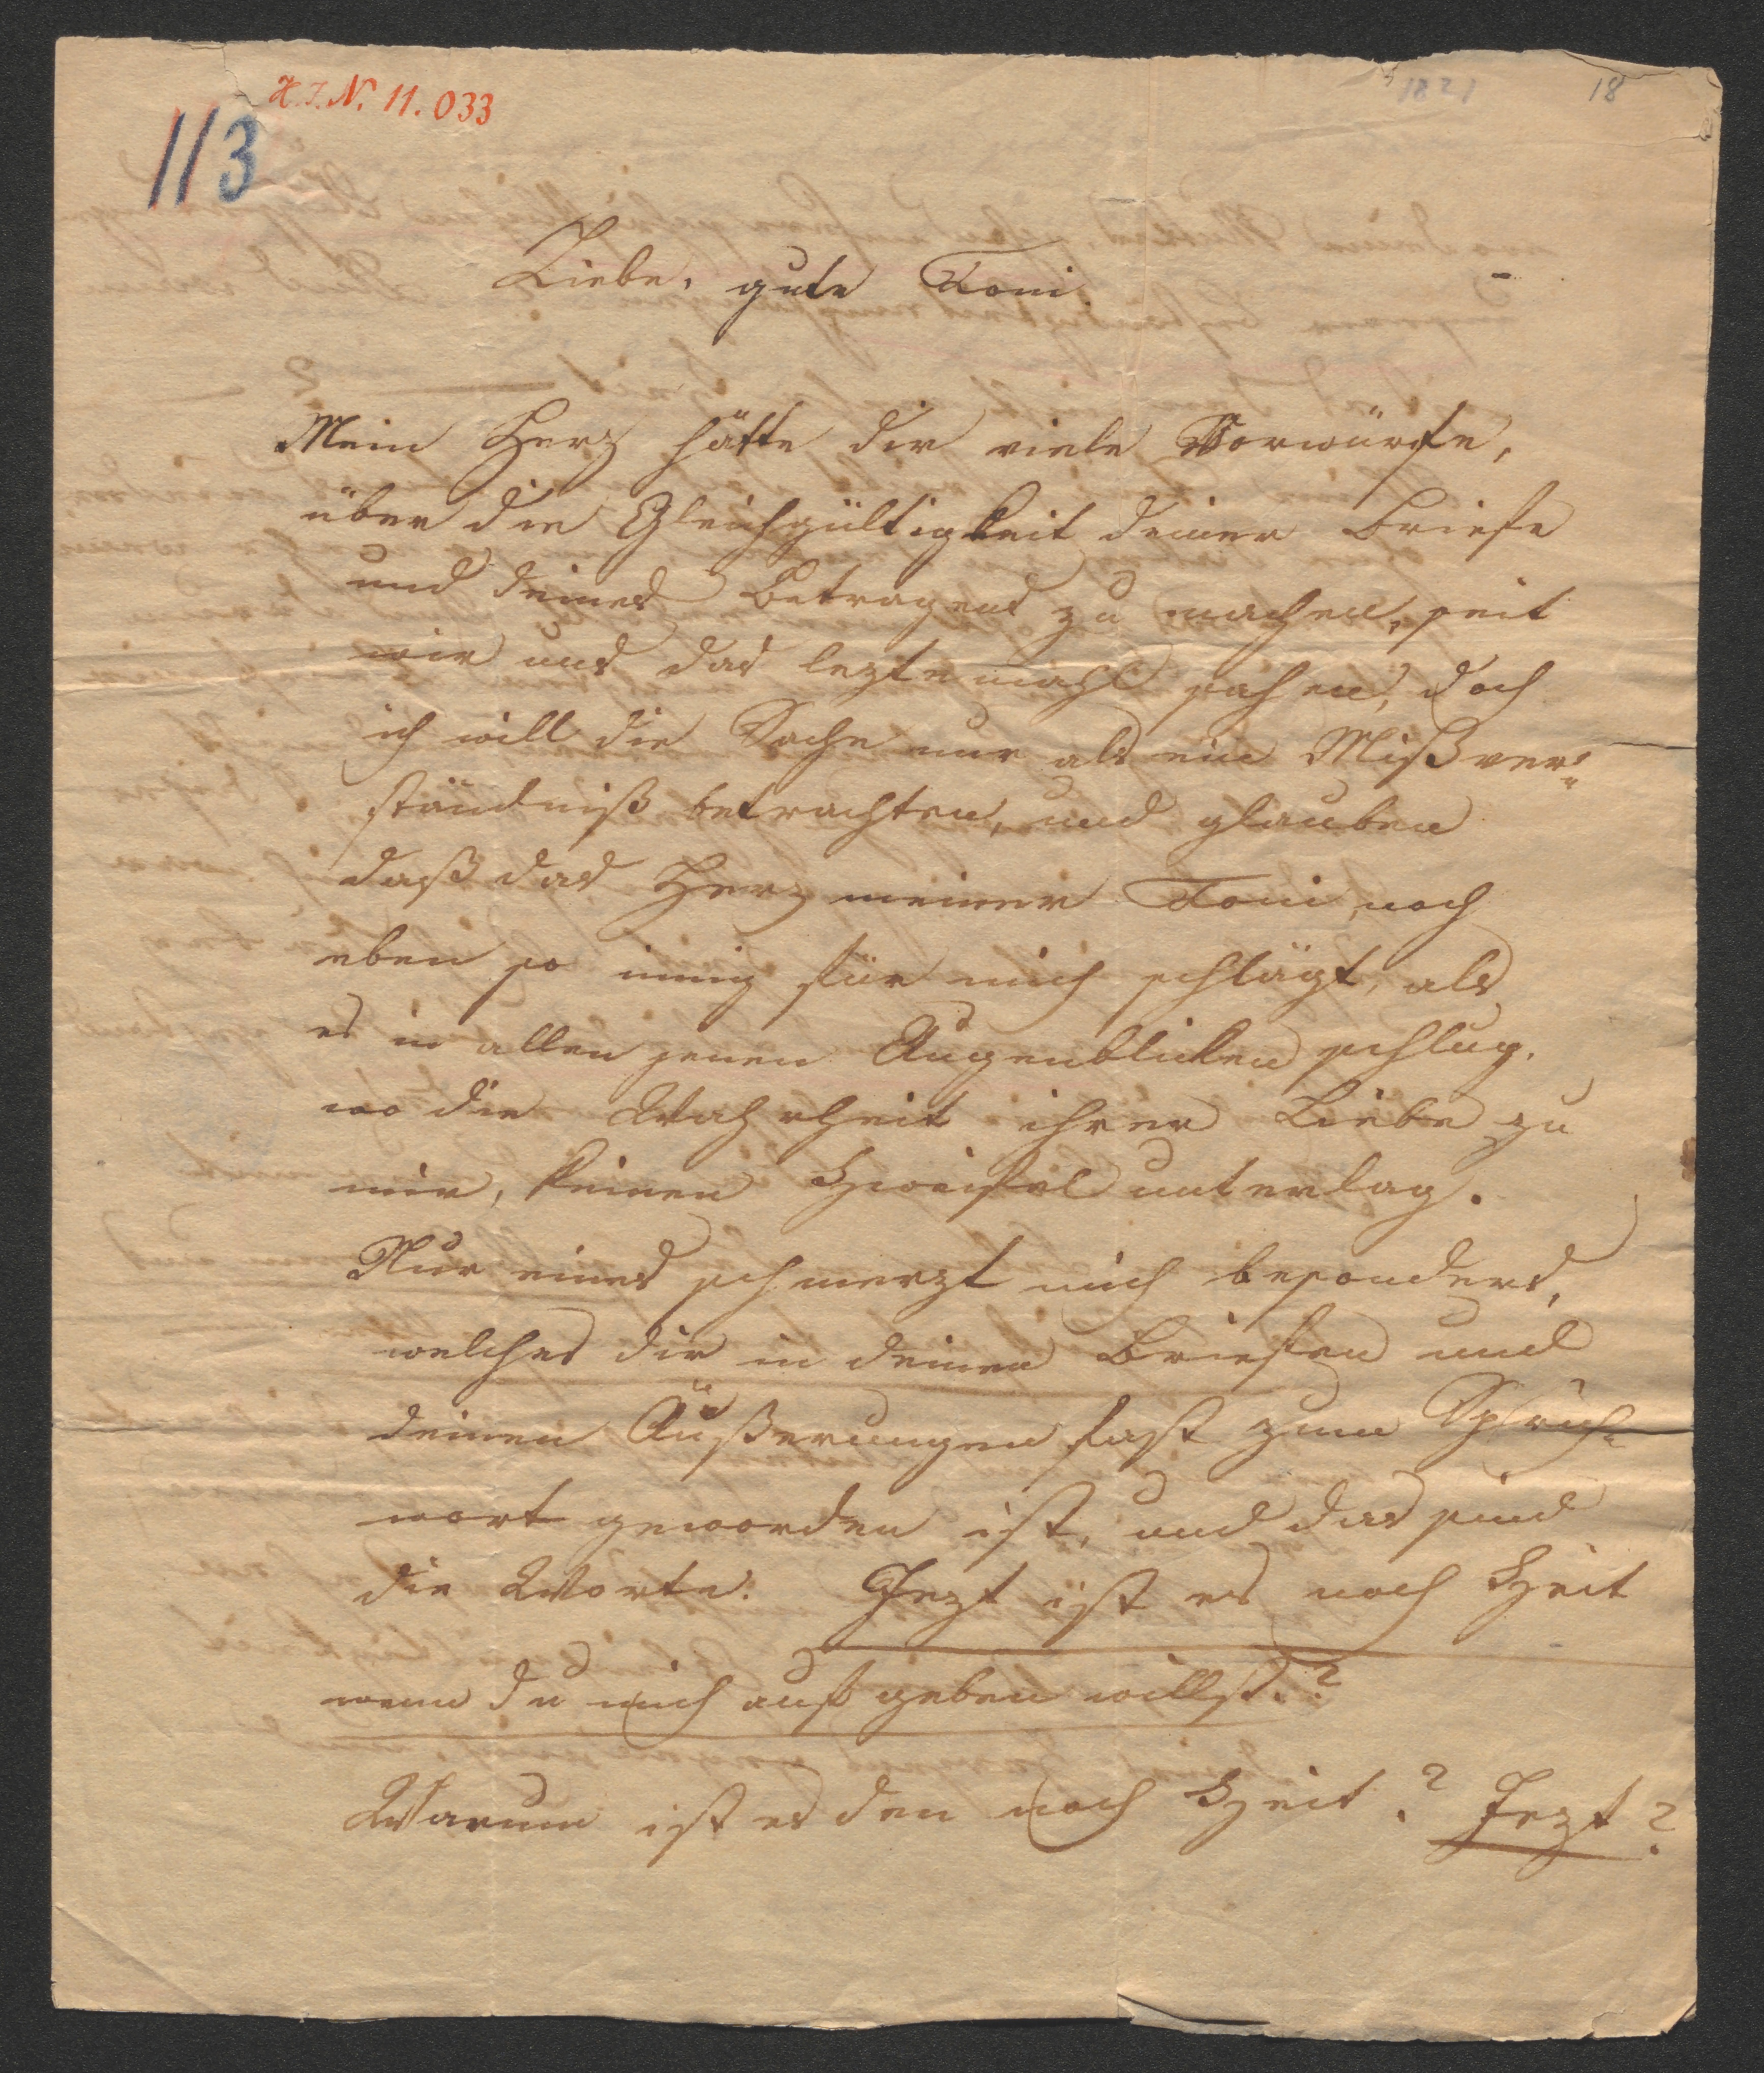 H.I.N. 11.033
113
1821
18
Liebe, gute Toni
Mein Herz hätte dir viele Vorwürfe,
über die Gleichgültigkeit deiner Briefe
und deines Betragens zu machen, seit
wir uns das leztemahl sahen, doch
ich will die Sache nur als ein Mißver=
ständniß betrachten, und glauben
daß das Herz meiner Toni noch
eben so innig für mich schlägt, als
es in allen jenen Augenblicken schlug,
wo die Wahrheit ihrer Liebe zu
mir, keinen Zweifel unterlag.
Nur eines schmerzt mich besonders,
welches dir in deinen Briefen und
deinen Äußerungen fast zum Sprich=
wort geworden ist, und das sind
die Worte: Jezt ist es noch Zeit
wenn du mich aufgeben willst.?
Warum ist es den noch Zeit? Jezt?